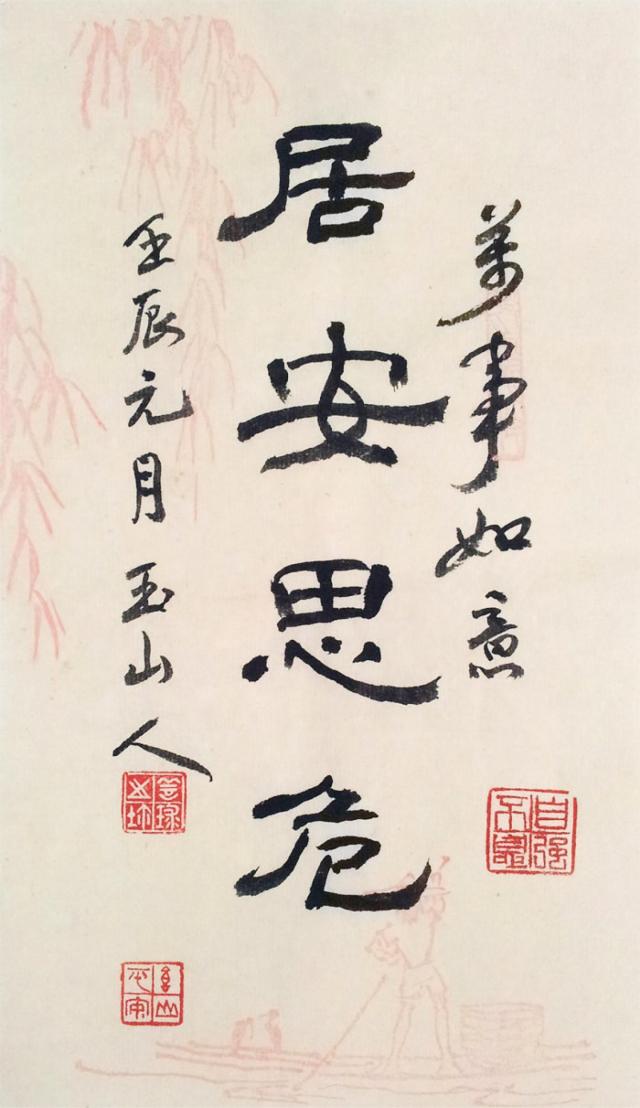 萬事如意
居安思危
壬辰元月玉山人
自强不息